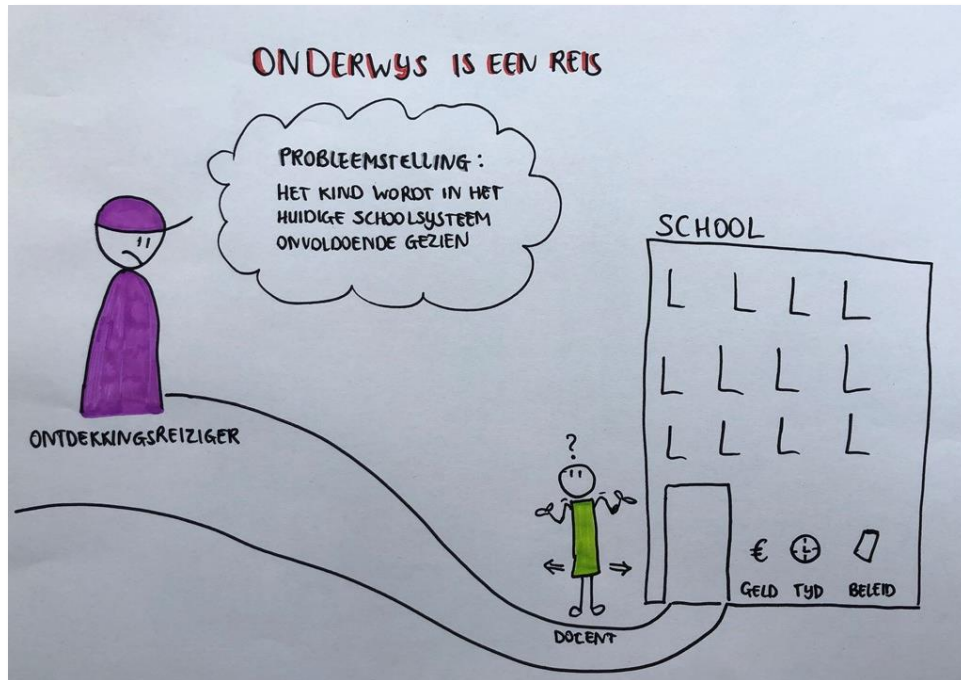 ONDERWYS IS EEN REIS
PROBLEEMSTELLING:
HET KIND WORDT IN HET
HUIDIGE SCHOOLSYSTEEM
ONVOLDOENDE GEZIEN
SCHOOL
ONTDEKKINGSREIZIGER
?
€
GELD TYD BELEID
DOCENT